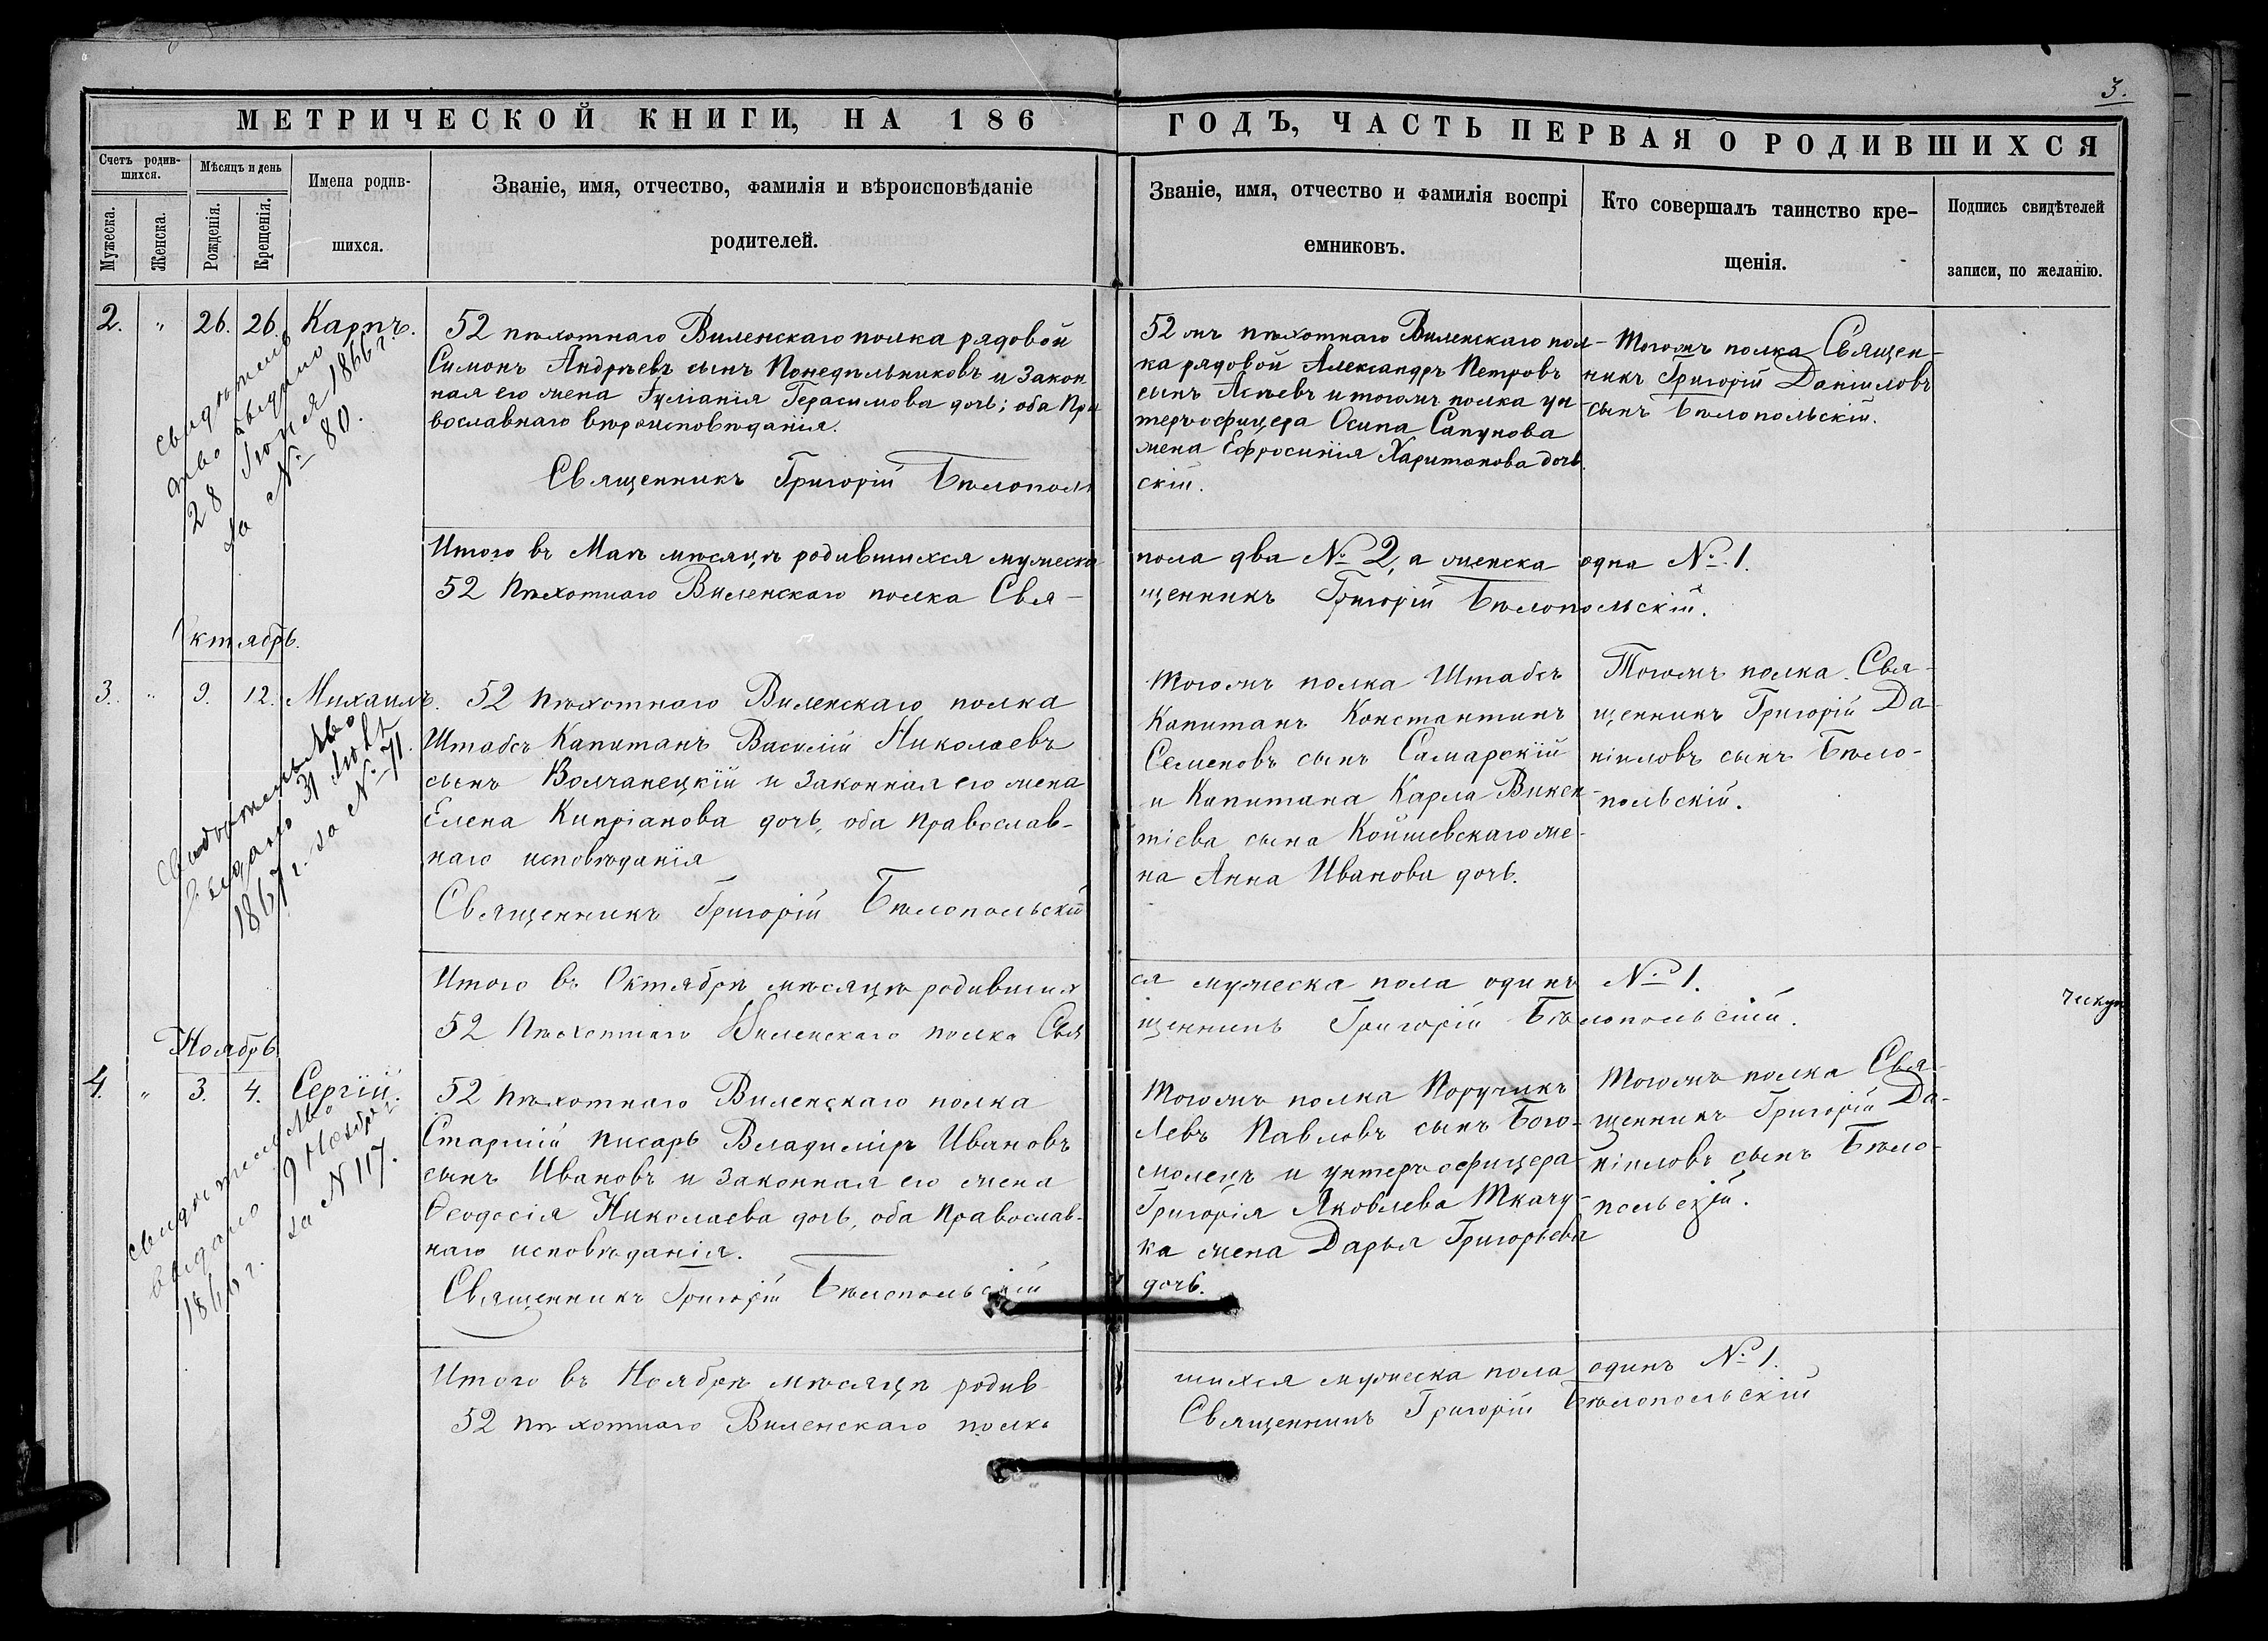 3.
МЕТРИЧЕСКОЙ КНИГИ, НА 186
ГОДЪ, ЧАСТЬ ПЕРВАЯ О РОДИВШИХСЯ
Счетъ родив-
шихся.
Мужеска.
Женска.
Мѣсяцъ и день
Рожденія.
Крещенія.
Имена родив-
шихся.
Званіе, имя, отчество, фамилія и вѣроисповѣданіе
родителей.
Званіе, имя, отчество и фамилія воспрі
емниковъ.
Кто совершалъ таинство кре-
щенія.
Подпись свидѣтелей
записи, по желанію.
2. " 26. 26. Карпъ.
свидѣтель
тво выдано
28 Іюня 1866 г.
за № 80.
52 пѣхотнаго Виленскаго полка рядовой
Симонъ Андреевъ сынъ Понедѣльниковъ и закон
ная его жена Іуліанія Герасимова дочь; оба Пра
вославнаго вѣроисповѣданія.
Священникъ Григорій Бѣлополь
52 мъ пѣхотнаго Виленскаго пол-
ка рядовой Александръ Петровъ
сынъ и тогожъ полка ун
теръ офицера Осипа Сапунова
жена Ефросинія Харитонова дочь.
скій.
Тогожъ полка Священ-
никъ Григорій Даніиловъ
сынъ Бѣлопольскій.
Итого въ Маѣ мѣсяцѣ родившихся мужеска
пола два № 2, а женска одна № 1.
52 Пѣхотнаго Виленскаго полка Свя-
щенникъ Григорій Бѣлопольскій.
Октябрь.
3. " 9. 12. Михаилъ.
Свидѣтельство
выдано 31 Іюля
1867 г. за № 71.
52 Пѣхотнаго Виленскаго полка
Штабсъ Капитанъ Василій Николаевъ
сынъ Волчанецкій и Законная его жена
Елена Кипріанова дочь, оба Православ-
наго исповѣданія
Священникъ Григорій Бѣлопольскій
Тогожъ полка Штабсъ
Капитанъ Константинъ
Семеновъ сынъ Самарскій
и Капитана Карла Викен
тіева сына Койшевскаго же-
на Анна Иванова дочь.
Тогожъ полка Свя-
щенникъ Григорій Да-
ніиловъ сынъ Бѣло-
польскій.
Итого въ Октябрѣ мѣсяцѣ родивших
ся мужеска пола одинъ № 1.
52 Пѣхотнаго Виленскаго полка Свя
щенникъ Григорій Бѣлопольскій.
Ноябрь
4. " 3. 4. Сергій.
свидѣтельство
выдано 9 Ноября
1866 г. за № 117.
52 Пѣхотнаго Виленскаго полка
Старшій писарь Владиміръ Ивановъ
сынъ Ивановъ и Законная его жена
Ѳеодосія Николаева дочь, оба Православ-
наго исповѣданія.
Священникъ Григорій Бѣлопольскій
Тогожъ полка Поручикъ
Левъ Павловъ сынъ Бого-
молецъ и унтеръ офицера
Григорія Яковлева Ткачу-
ка жена Дарья Григорьева
дочь.
Тогожъ полка Свя-
щенникъ Григорій Да-
ніиловъ сынъ Бѣло-
польскій.
Итого въ Ноябрѣ мѣсяцѣ родив
шихся мужеска пола одинъ № 1.
52 пѣхотнаго Виленскаго полка
Священникъ Григорій Бѣлопольскій